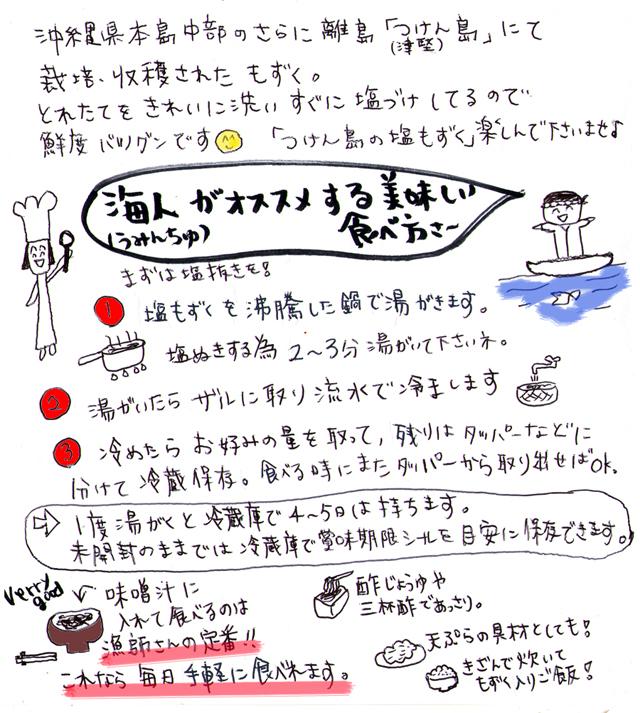 沖縄県本島中部のさらに離島「つけん島」にて
(津堅)
栽培、収穫された もずく。
とれたてを きれいに洗い すぐに 塩づけ してるので
鮮度 バツグンです 「つけん島の塩もずく」楽しんで下さいませ♪
海人がオススメする美味しい
(うみんちゅ) 食べ方さ〜
まずは塩抜きを!
1 塩もずくを沸騰した鍋で湯がきます。
塩ぬきする為 2〜3分 湯がいて下さいネ。
2 湯がいたら ザルに取り 流水で冷まします
3 冷めたら お好みの量を取って、残りは タッパーなどに
分けて 冷蔵保存。食べる時にまた タッパーから取り出せばOK.
⇨ 1度湯がくと 冷蔵庫で 4〜5日は 持ちます。
未開封のままでは 冷蔵庫で 賞味期限シールを 目安に 保存できます。
verry good
味噌汁に
入れて食べるのは
漁師さんの定番!!
これなら 毎日 手軽に食べれます。
酢じょうゆや
三杯酢であっさり。
天ぷらの具材としても!
きざんで炊いて
もずく入りご飯!